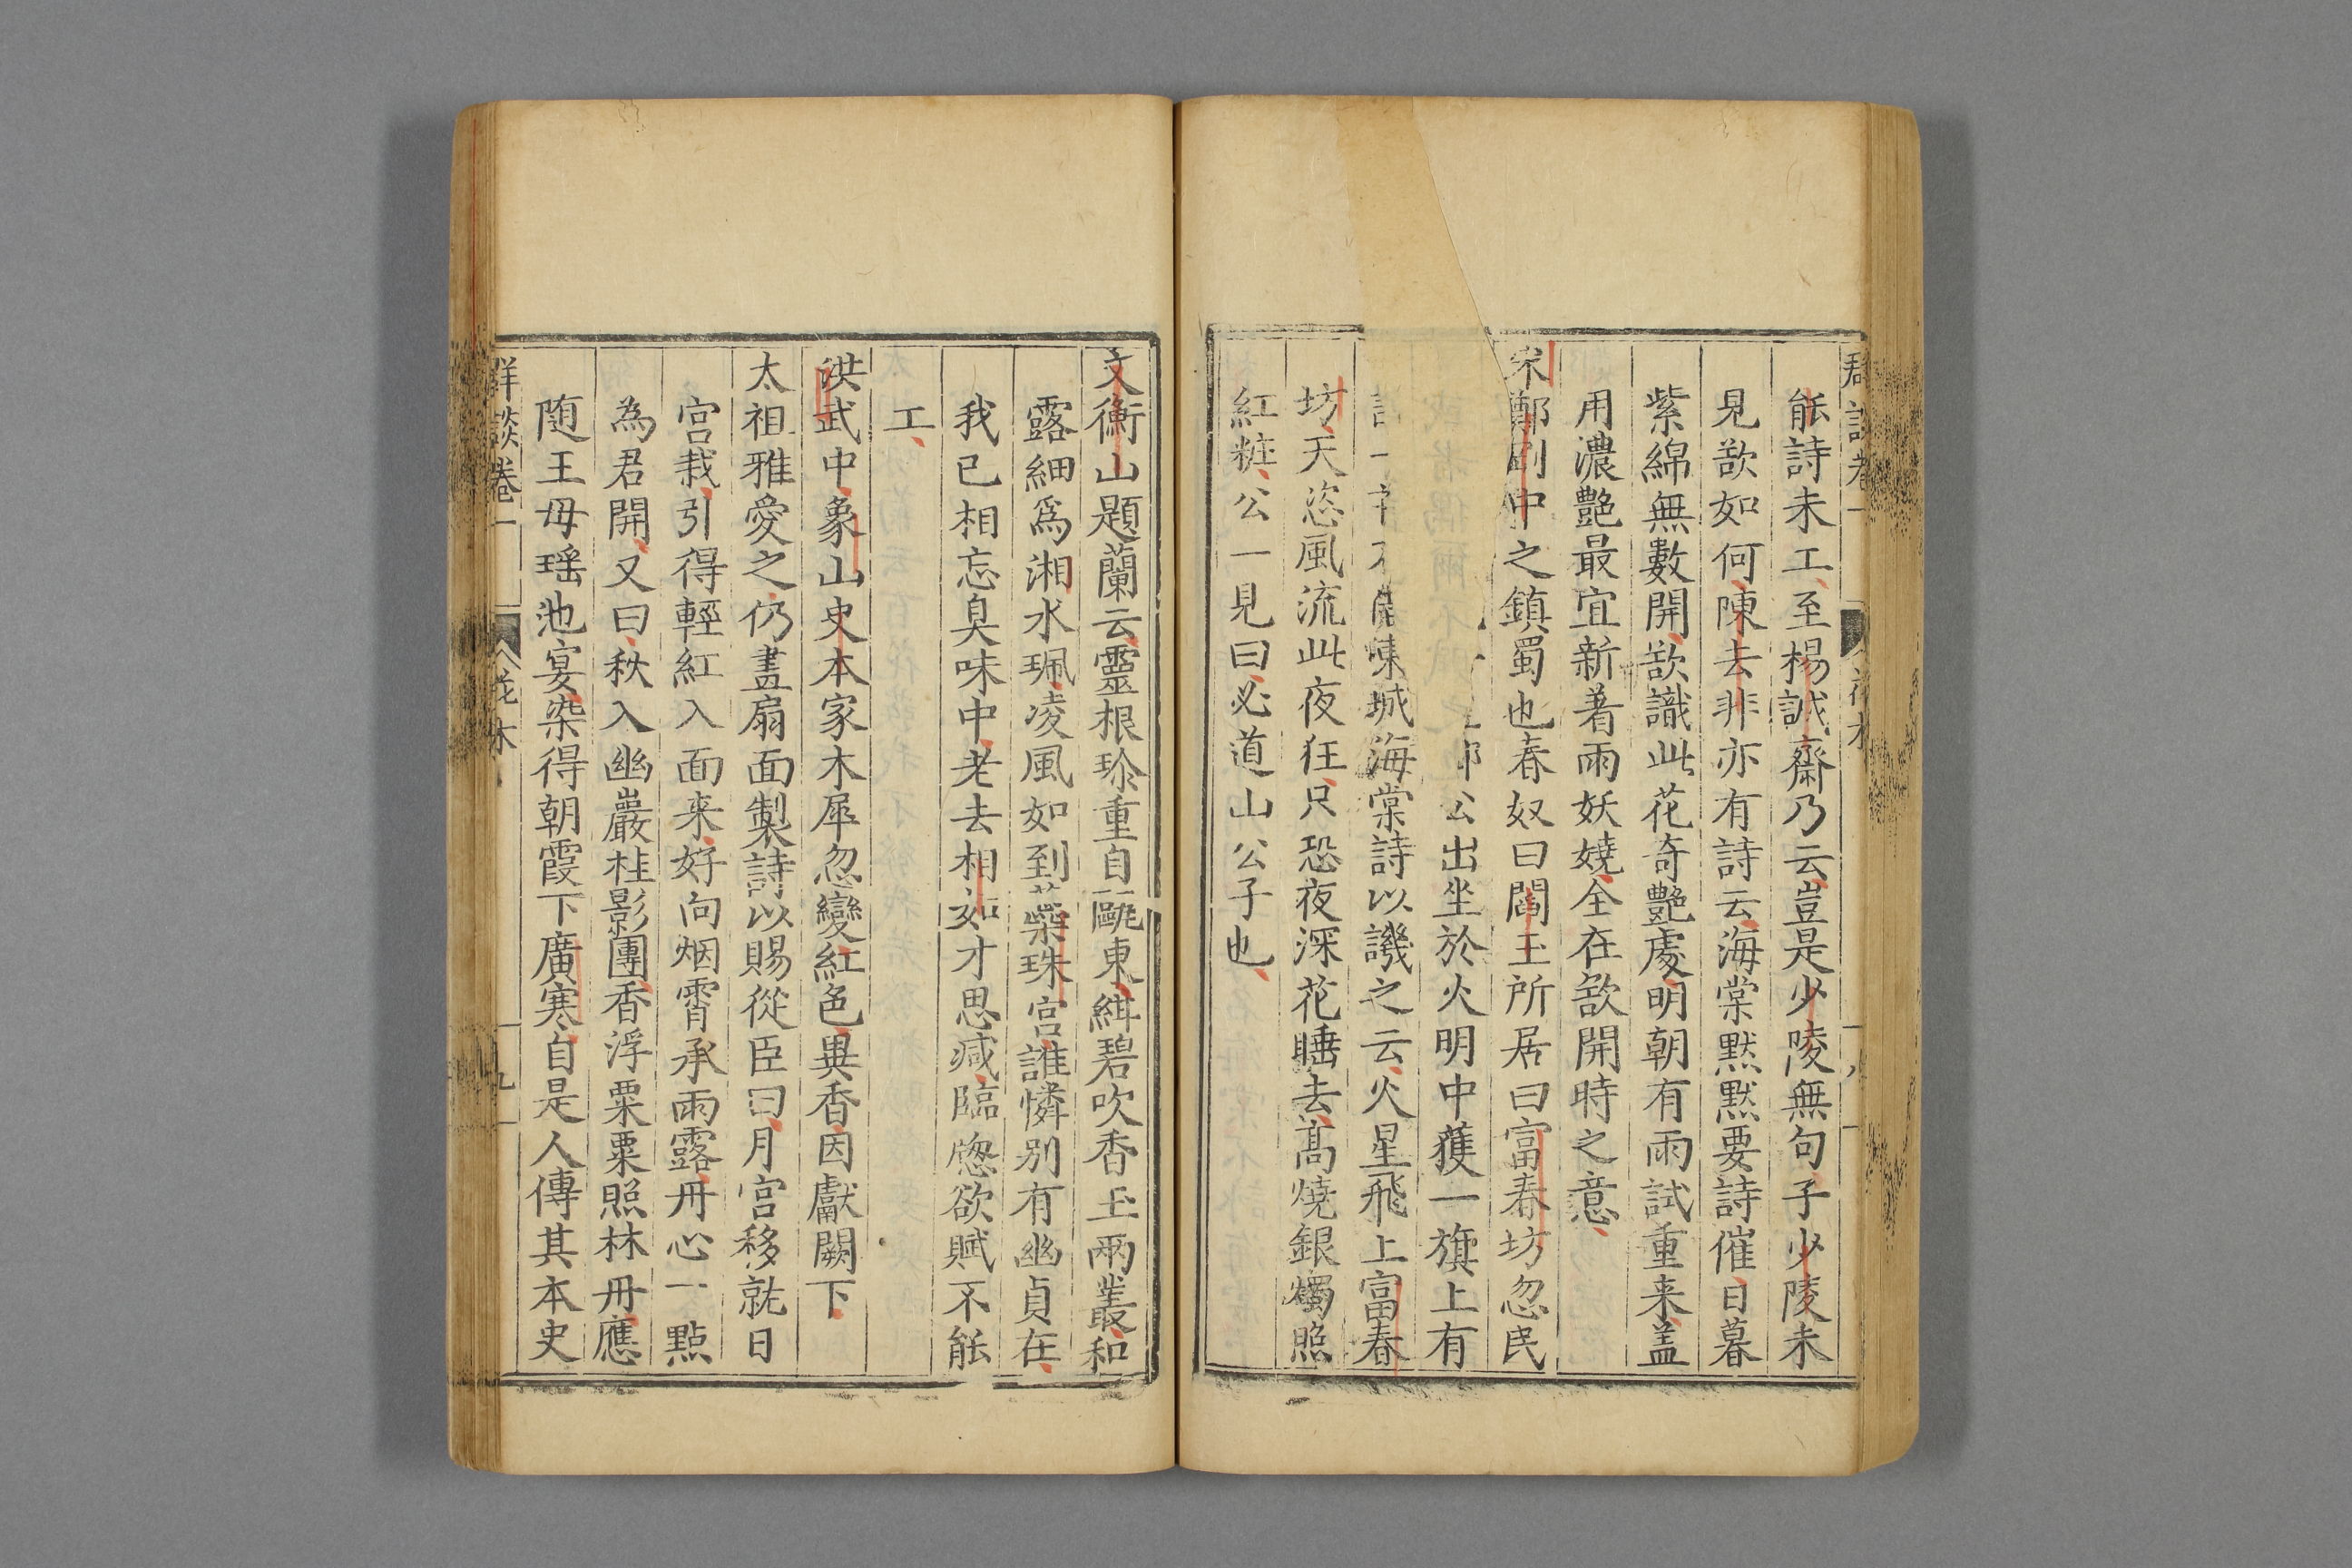 能詩未工至楊誠齋乃云豈是少陵無句子少陵未
見欲如何陳去非亦有詩云海棠黙黙要詩催日暮
紫綿無數開欲識此花奇艷處明朝有雨試重来盖
用濃艷最宜新著雨妖嬈全在欲開時之意
宋鄭剛中之鎮蜀也春奴曰閻王所居曰富春坊忽民
公出坐於火明中獲一旗上有
城海棠詩以譏之云火星飛上富春
坊天恣風流此夜狂只恐夜深花睡去髙燒銀燭照
紅粧公一見曰必道山公子也
文衡山題蘭云靈根珎重自甌東緝碧吹香玉兩叢和
露細爲湘水珮凌風如到蘂珠宫誰憐别有幽貞在
我已相忘臭味中老去相如才思减臨牕欲賦不能
工
洪武中象山史本家木犀忽變紅色異香因獻闕下
太祖雅愛之仍畫扇面製詩以賜從臣曰月宫移就日
宫栽引得輕紅入面来好向烟霄承雨露丹心一點
為君開又曰秋入幽巖桂影團香浮粟粟照林丹應
随王母瑶池宴染得朝霞下廣寒自是人傳其本史
群談卷一
花木
九